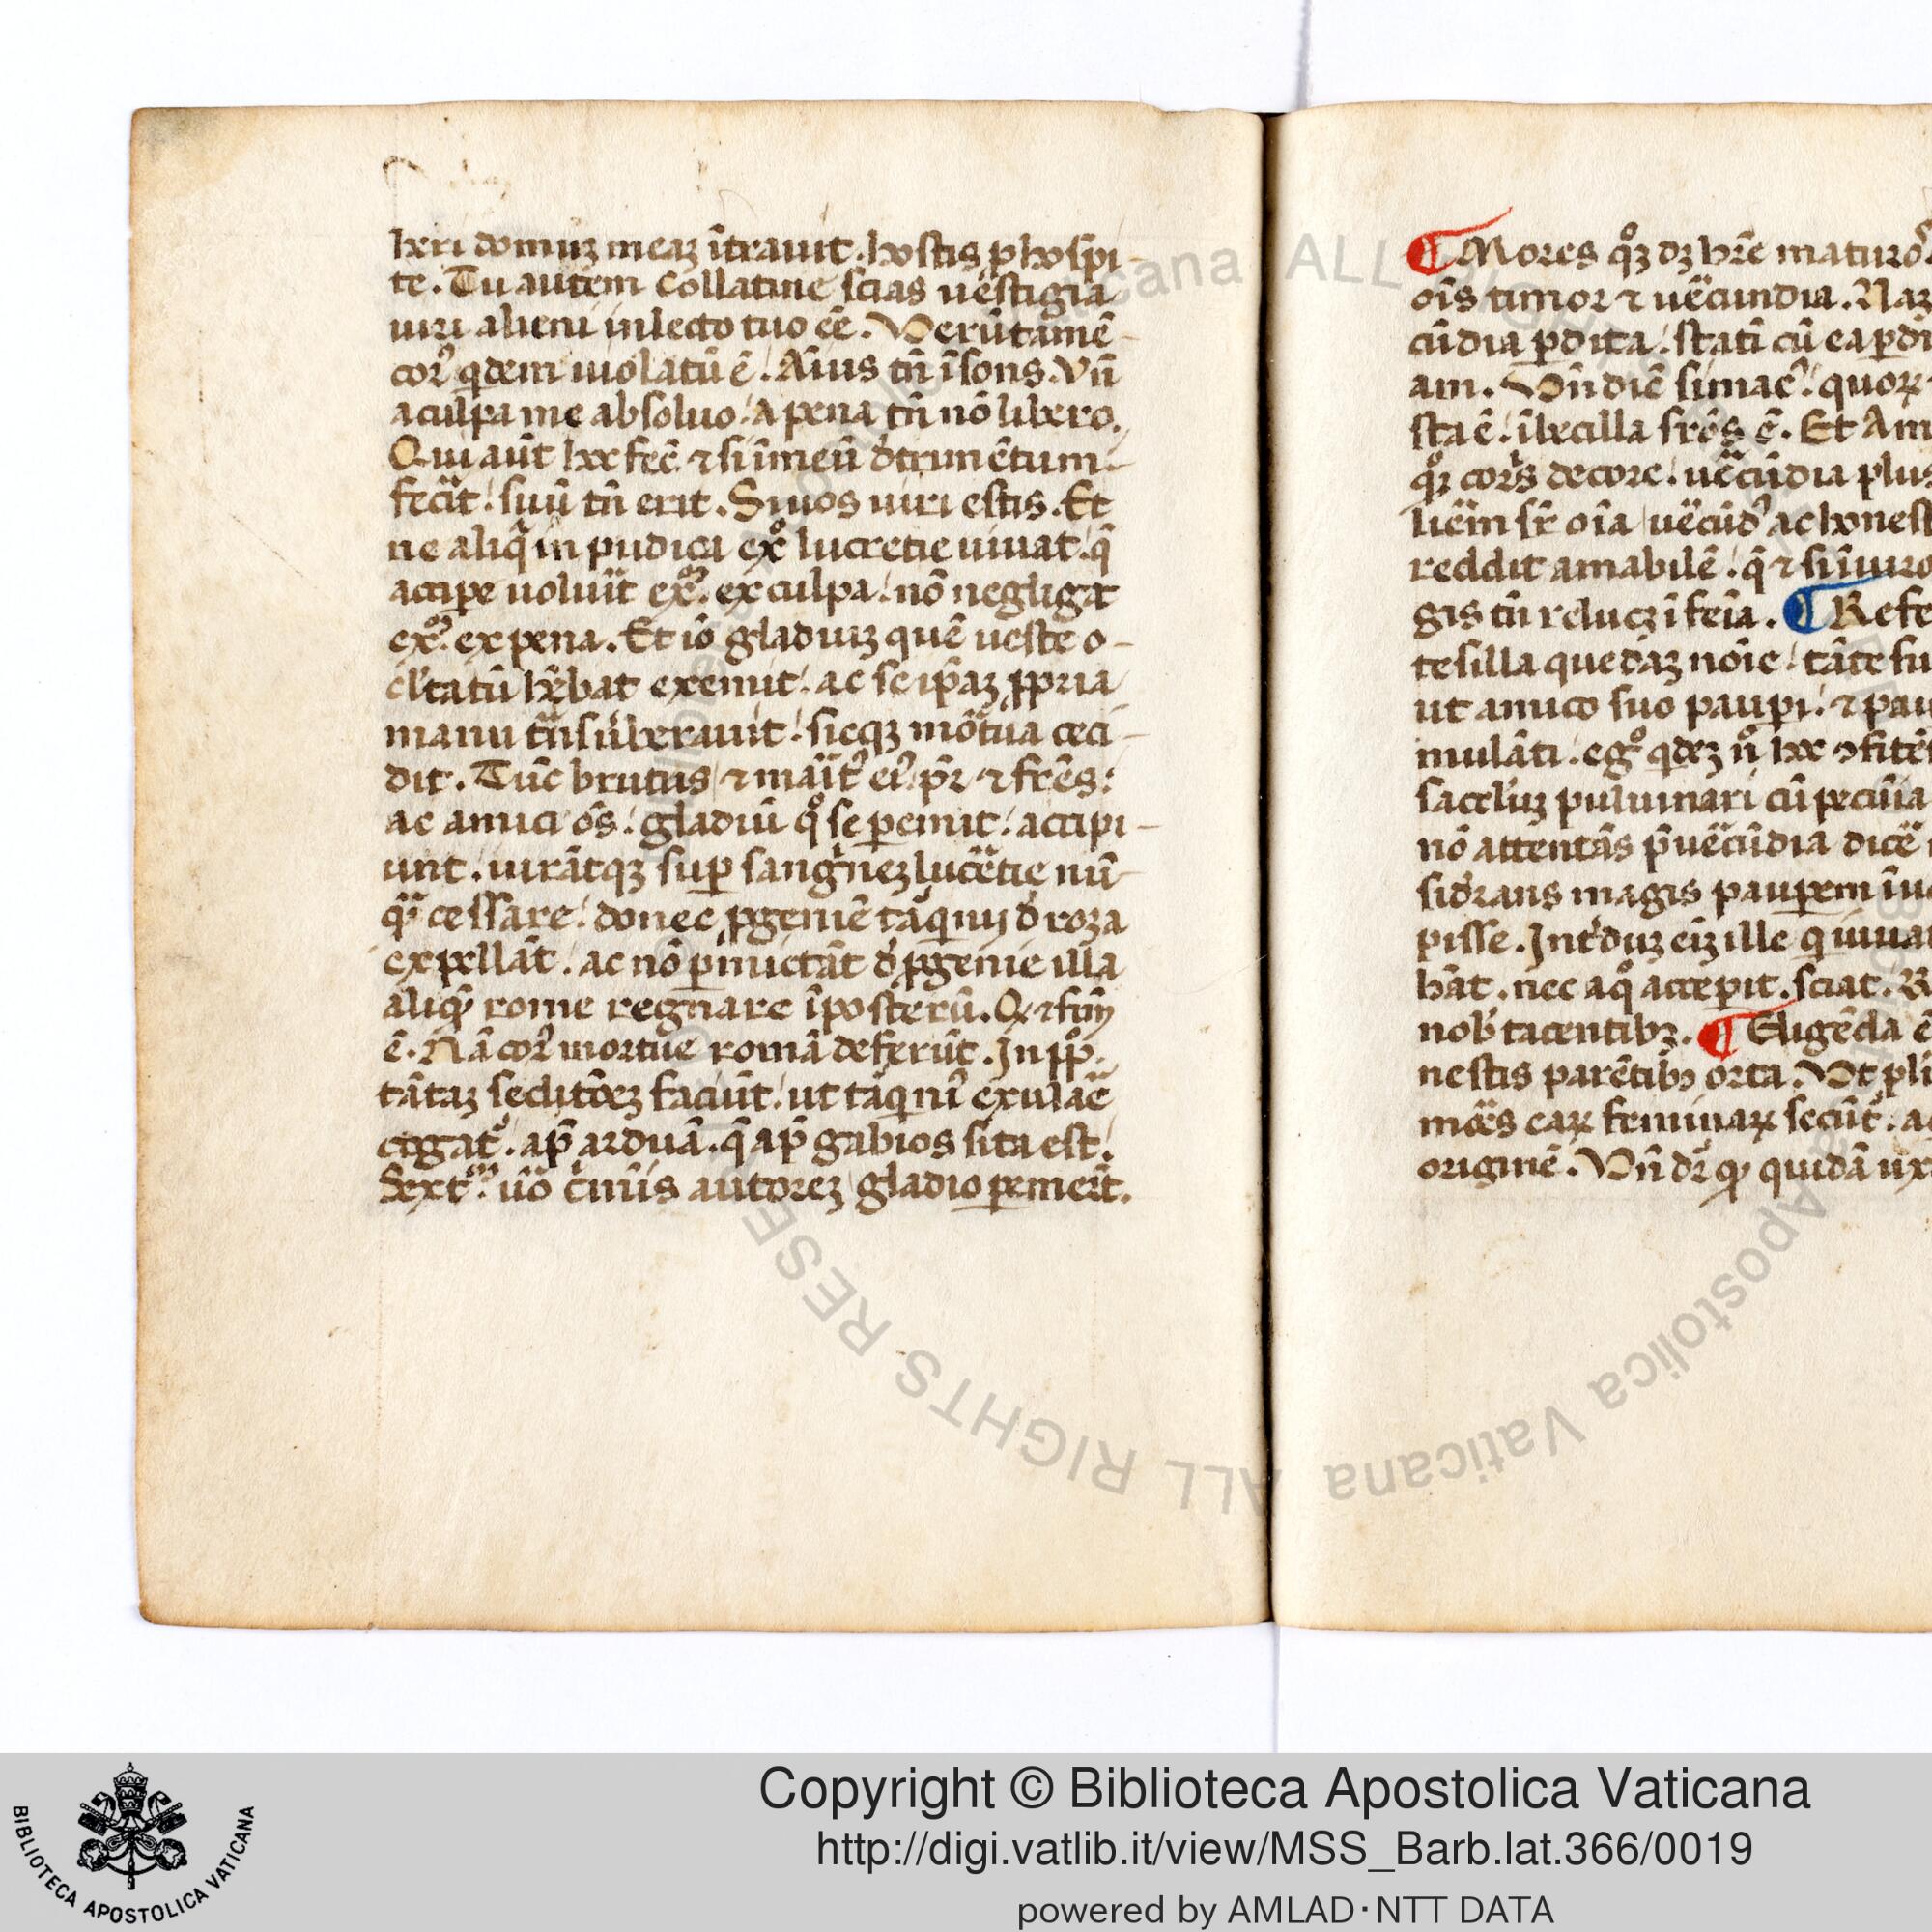 heri domuz meaz ītrauit. hostis p hosp̄i
te. Tu autem Collatine scias uestigia
uiri alieni in lecto tuo eē. Verūtamē
cor⁹ qdem uiolatū ē. Aīus tn̄ īsons. vn̄
a culpa me absoluo. a pena tn̄ nō libero.
Qui aūt hec fec̄
fec̄it. suū tn̄ erit. Si uos uiri estis. Et
ne aliq̄ in pudica exº lucretie uiuat. q̄
accipe noluit ex. ex culpa. nō negligat
ex. ex pena. Et iō gladiuz quē ueste o-
tatū hēbat exemit. ac se ip̄az ꝓpria
manu sic qz mortua ceci-
dit. Tūc brutus ⁊ marit⁹ ei⁹ pr̄ ⁊ fr̄es.
ac amici ōs. gladiū qº se pemit. accipi-
unt. iurātqz sup lucretie nū
qᵃ cessare. donec ꝓgeniē taqnij d' roza
expellāt. ac nō pmictāt d' ꝓgenie illa
aliq rome regnare īposterū. Q ⁊ fcm̄
ē. Nā cor⁹ mortue romā deferūt. In pp̄.
tātaz seditōez faciūt. ut taqni⁹ exulare
cogat. ap̄ arduā. q̄ ap̄ gabios sita est.
Sext. u̅o autorez gladio pemeīt.
¶ Mores qºz dz hr̄e maturo
oīs timor ⁊ uēcundia. Naz
cūdia pdita. statī cū ea pdi
am. Vn̄ diē simac⁹. quoꝝ
sta ē. ībecilla frōs ē. Et Am
decore. uēcūdia plus
ac honest
reddit amabilē. q̄ ⁊ si
gis tn̄ relucz ī feīa. ¶ Refe
tesilla quedaz nōie. tāte fu
ut amico suo paupi. ⁊ pau
mulāti. egº qdez nº hec ꝯfitē
puluinari cū pecūia
nō attentās p̄ uēcūdia dicē
sid'ans magis paupem
pisse. Int'duz eīz ille q iuua
bāt. nec a qº accepit. sciat. R
nob' tacentibz. ¶ Eligēda ē
nestis parētib⁹ orta. Vt pli
mores eaꝝ feminaꝝ secūt. a
originē. Vn̄ dr̄ ꝙ quidā ux
Copyright © Biblioteca Apostolica Vaticana
http://digi.vatlib.it/view/MSS_Barb.lat.366/0019
powered by AMLAD·NTT DATA
BIBLIOTECA APOSTOLICA VATICANA